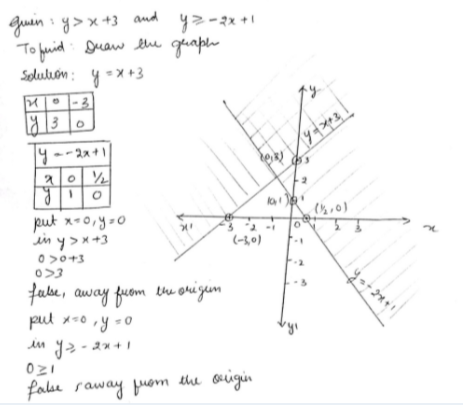 Given : y > x + 3 and y ≥ -2x + 1
To find : Draw the graph
Solution : y = x + 3
x 0 -3
y 3 0
y = -2x + 1
x 0 1/2
y 1 0
put x=0, y=0
in y > x+3
0 > 0+3
0 > 3
false, away from the origin
put x=0, y=0
in y ≥ -2x + 1
0 ≥ 1
false, away from the origin
y
y = x+3
(0,3)
3
2
(0,1)
1
(1/2, 0)
x'
-3 -2 -1 0 1 2 3
x
(-3,0)
-1
-2
-3
y = -2x+1
y'